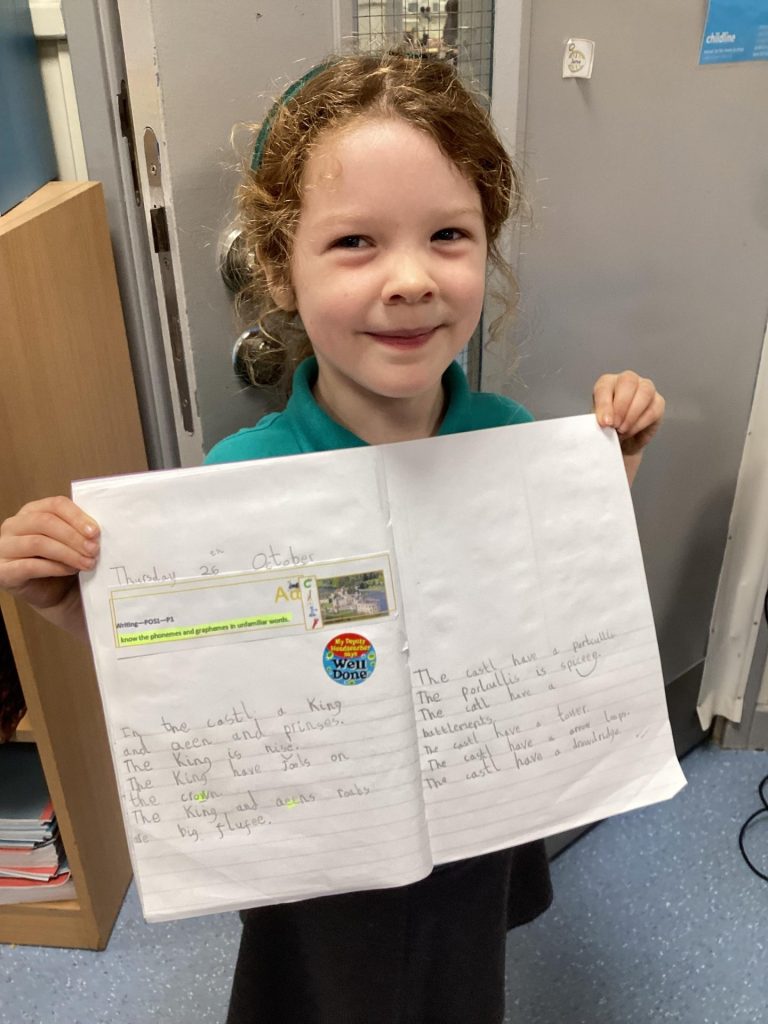 childline
Thursday 26 th October
Aa
Writing—POS1—P1
know the phonemes and graphemes in unfamiliar words.
My Deputy
Headteacher
says
Well
Done
In the castl a King
and qeen and prinses.
The King is nise.
The King have jools on
the crown
The King and qeens roabs
are big flufee.
The castl have a portcullis
The portcullis is spiceey.
The catl have a
battlements
The castl have a tower.
The castl have a arrow loops.
The castl have a drawbridge